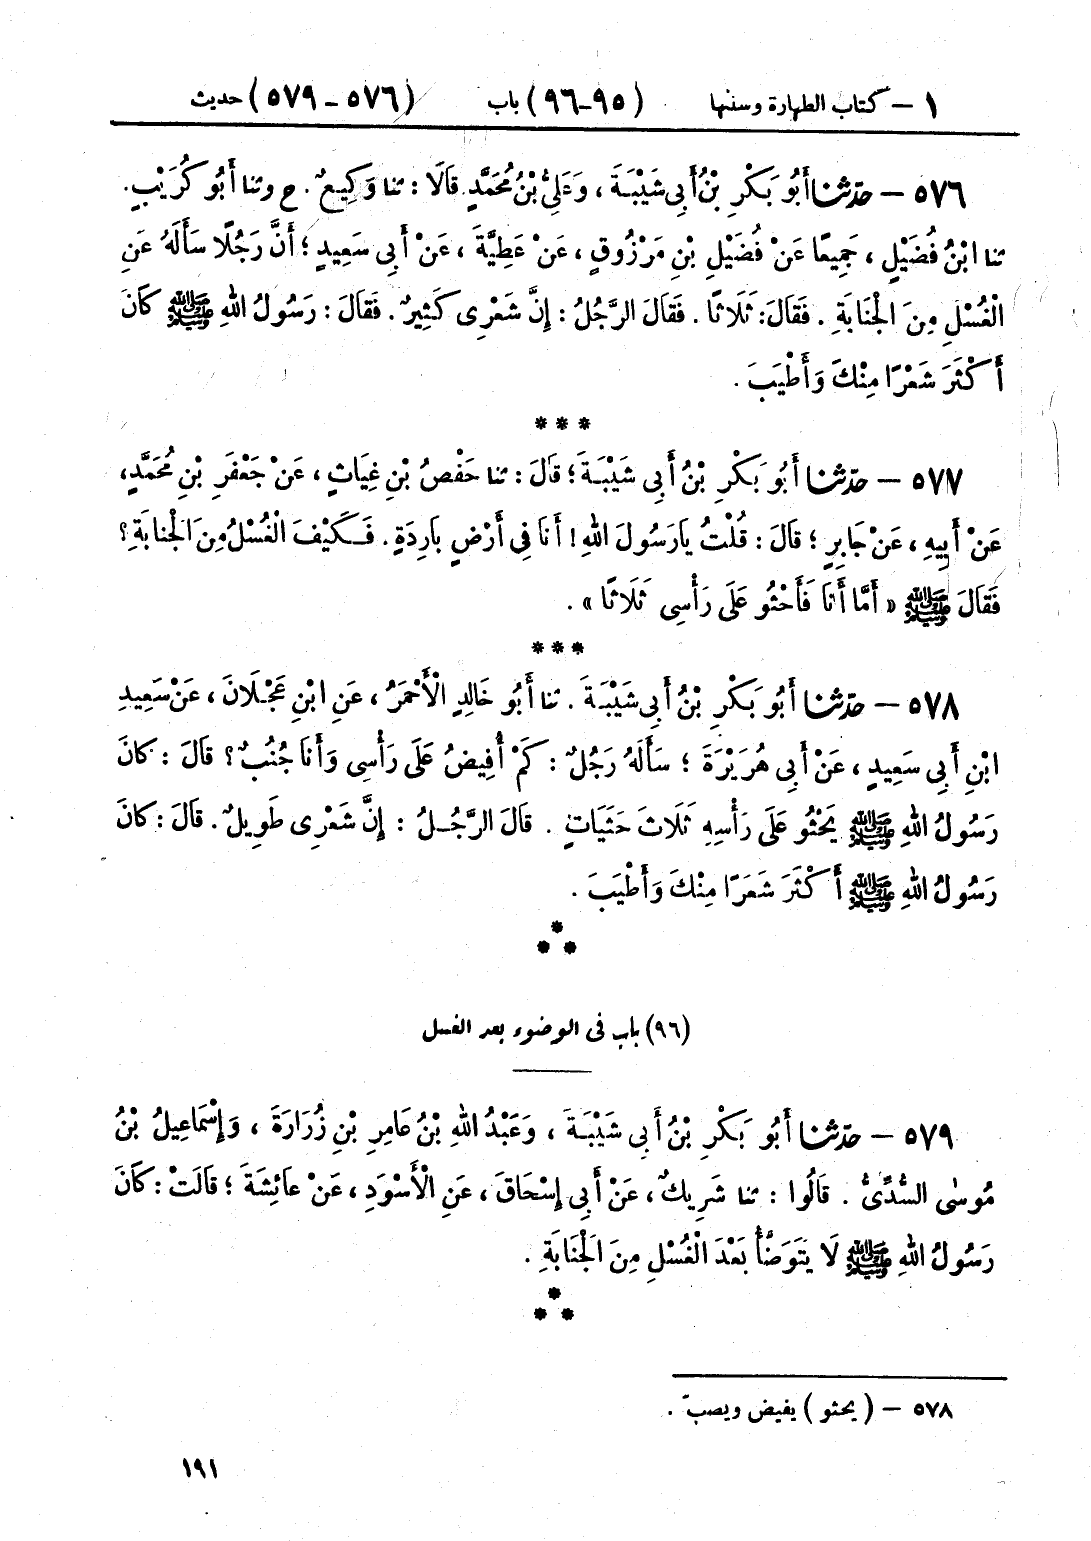 ١ – كتاب الطهارة وسننها (٩٥-٩٦) باب (٥٧٦-٥٧٩) حديث
٥٧٦ – حَدَّثَنَا أَبُو بَكْرِ بْنُ أَبِي شَيْبَةَ ، وَعَلِيُّ بْنُ مُحَمَّدٍ. قَالَا : ثنا وَكِيعٌ . ح وثنا أَبُو كُرَيْبٍ.
ثنا ابْنُ فُضَيْلٍ ، جَمِيعًا عَنْ فُضَيْلِ بْنِ مَرْزُوقٍ ، عَنْ عَطِيَّةَ ، عَنْ أَبِي سَعِيدٍ ؛ أَنَّ رَجُلًا سَأَلَهُ عَنِ
الْغُسْلِ مِنَ الْجَنَابَةِ . فَقَالَ: ثَلَاثًا . فَقَالَ الرَّجُلُ : إِنَّ شَعْرِى كَثِيرٌ . فَقَالَ : رَسُولُ اللهِ ﷺ كَانَ
أَكْثَرَ شَعْرًا مِنْكَ وَأَطْيَبَ .
* * *
٥٧٧ – حَدَّثَنَا أَبُو بَكْرِ بْنُ أَبِي شَيْبَةَ ؛ قَالَ : ثنا حَفْصُ بْنِ غِيَاثٍ ، عَنْ جَعْفَرِ بْنِ مُحَمَّدٍ،
عَنْ أَبِيهِ ، عَنْ جَابِرٍ ؛ قَالَ : قُلْتُ يَارَسُولَ اللهِ ! أَنَا فِي أَرْضٍ بَارِدَةٍ . فَكَيْفَ الْغُسْلُ مِنَ الْجَنَابَةِ ؟
فَقَالَ ﷺ « أَمَّا أَنَا فَأَحْثُو عَلَى رَأْسِى ثَلَاثًا » .
* * *
٥٧٨ – حَدَّثَنَا أَبُو بَكْرِ بْنُ أَبِي شَيْبَةَ . ثنا أَبُو خَالِدٍ الْأَحْمَرُ ، عَنِ ابْنِ عَجْلَانَ ، عَنْ سَعِيدِ
ابْنِ أَبِي سَعِيدٍ ، عَنْ أَبِي هُرَيْرَةَ ؛ سَأَلَهُ رَجُلٌ : كَمْ أُفِيضُ عَلَى رَأْسِى وَأَنَا جُنُبٌ ؟ قَالَ : كَانَ
رَسُولُ اللهِ ﷺ يَحْثُو عَلَى رَأْسِهِ ثَلَاثَ حَثَيَاتٍ . قَالَ الرَّجُلُ : إِنَّ شَعْرِى طَوِيلٌ . قَالَ : كَانَ
رَسُولُ اللهِ ﷺ أَكْثَرَ شَعَرًا مِنْكَ وَأَطْيَبَ .
* * *
(٩٦) باب فى الوضوء بعد الغسل
٥٧٩ – حَدَّثَنَا أَبُو بَكْرِ بْنُ أَبِي شَيْبَةَ ، وَعَبْدُ اللهِ بْنُ عَامِرِ بْنِ زُرَارَةَ ، وَإِسْمَاعِيلُ بْنُ
مُوسَى السُّدِّىُّ . قَالُوا : ثنا شَرِيكٌ ، عَنْ أَبِي إِسْحَاقَ ، عَنِ الْأَسْوَدِ ، عَنْ عَائِشَةَ ؛ قَالَتْ : كَانَ
رَسُولُ اللهِ ﷺ لَا يَتَوَضَّأُ بَعْدَ الْغُسْلِ مِنَ الْجَنَابَةِ .
* * *
٥٧٨ – ( يحثو ) يفيض ويصبّ .
١٩١